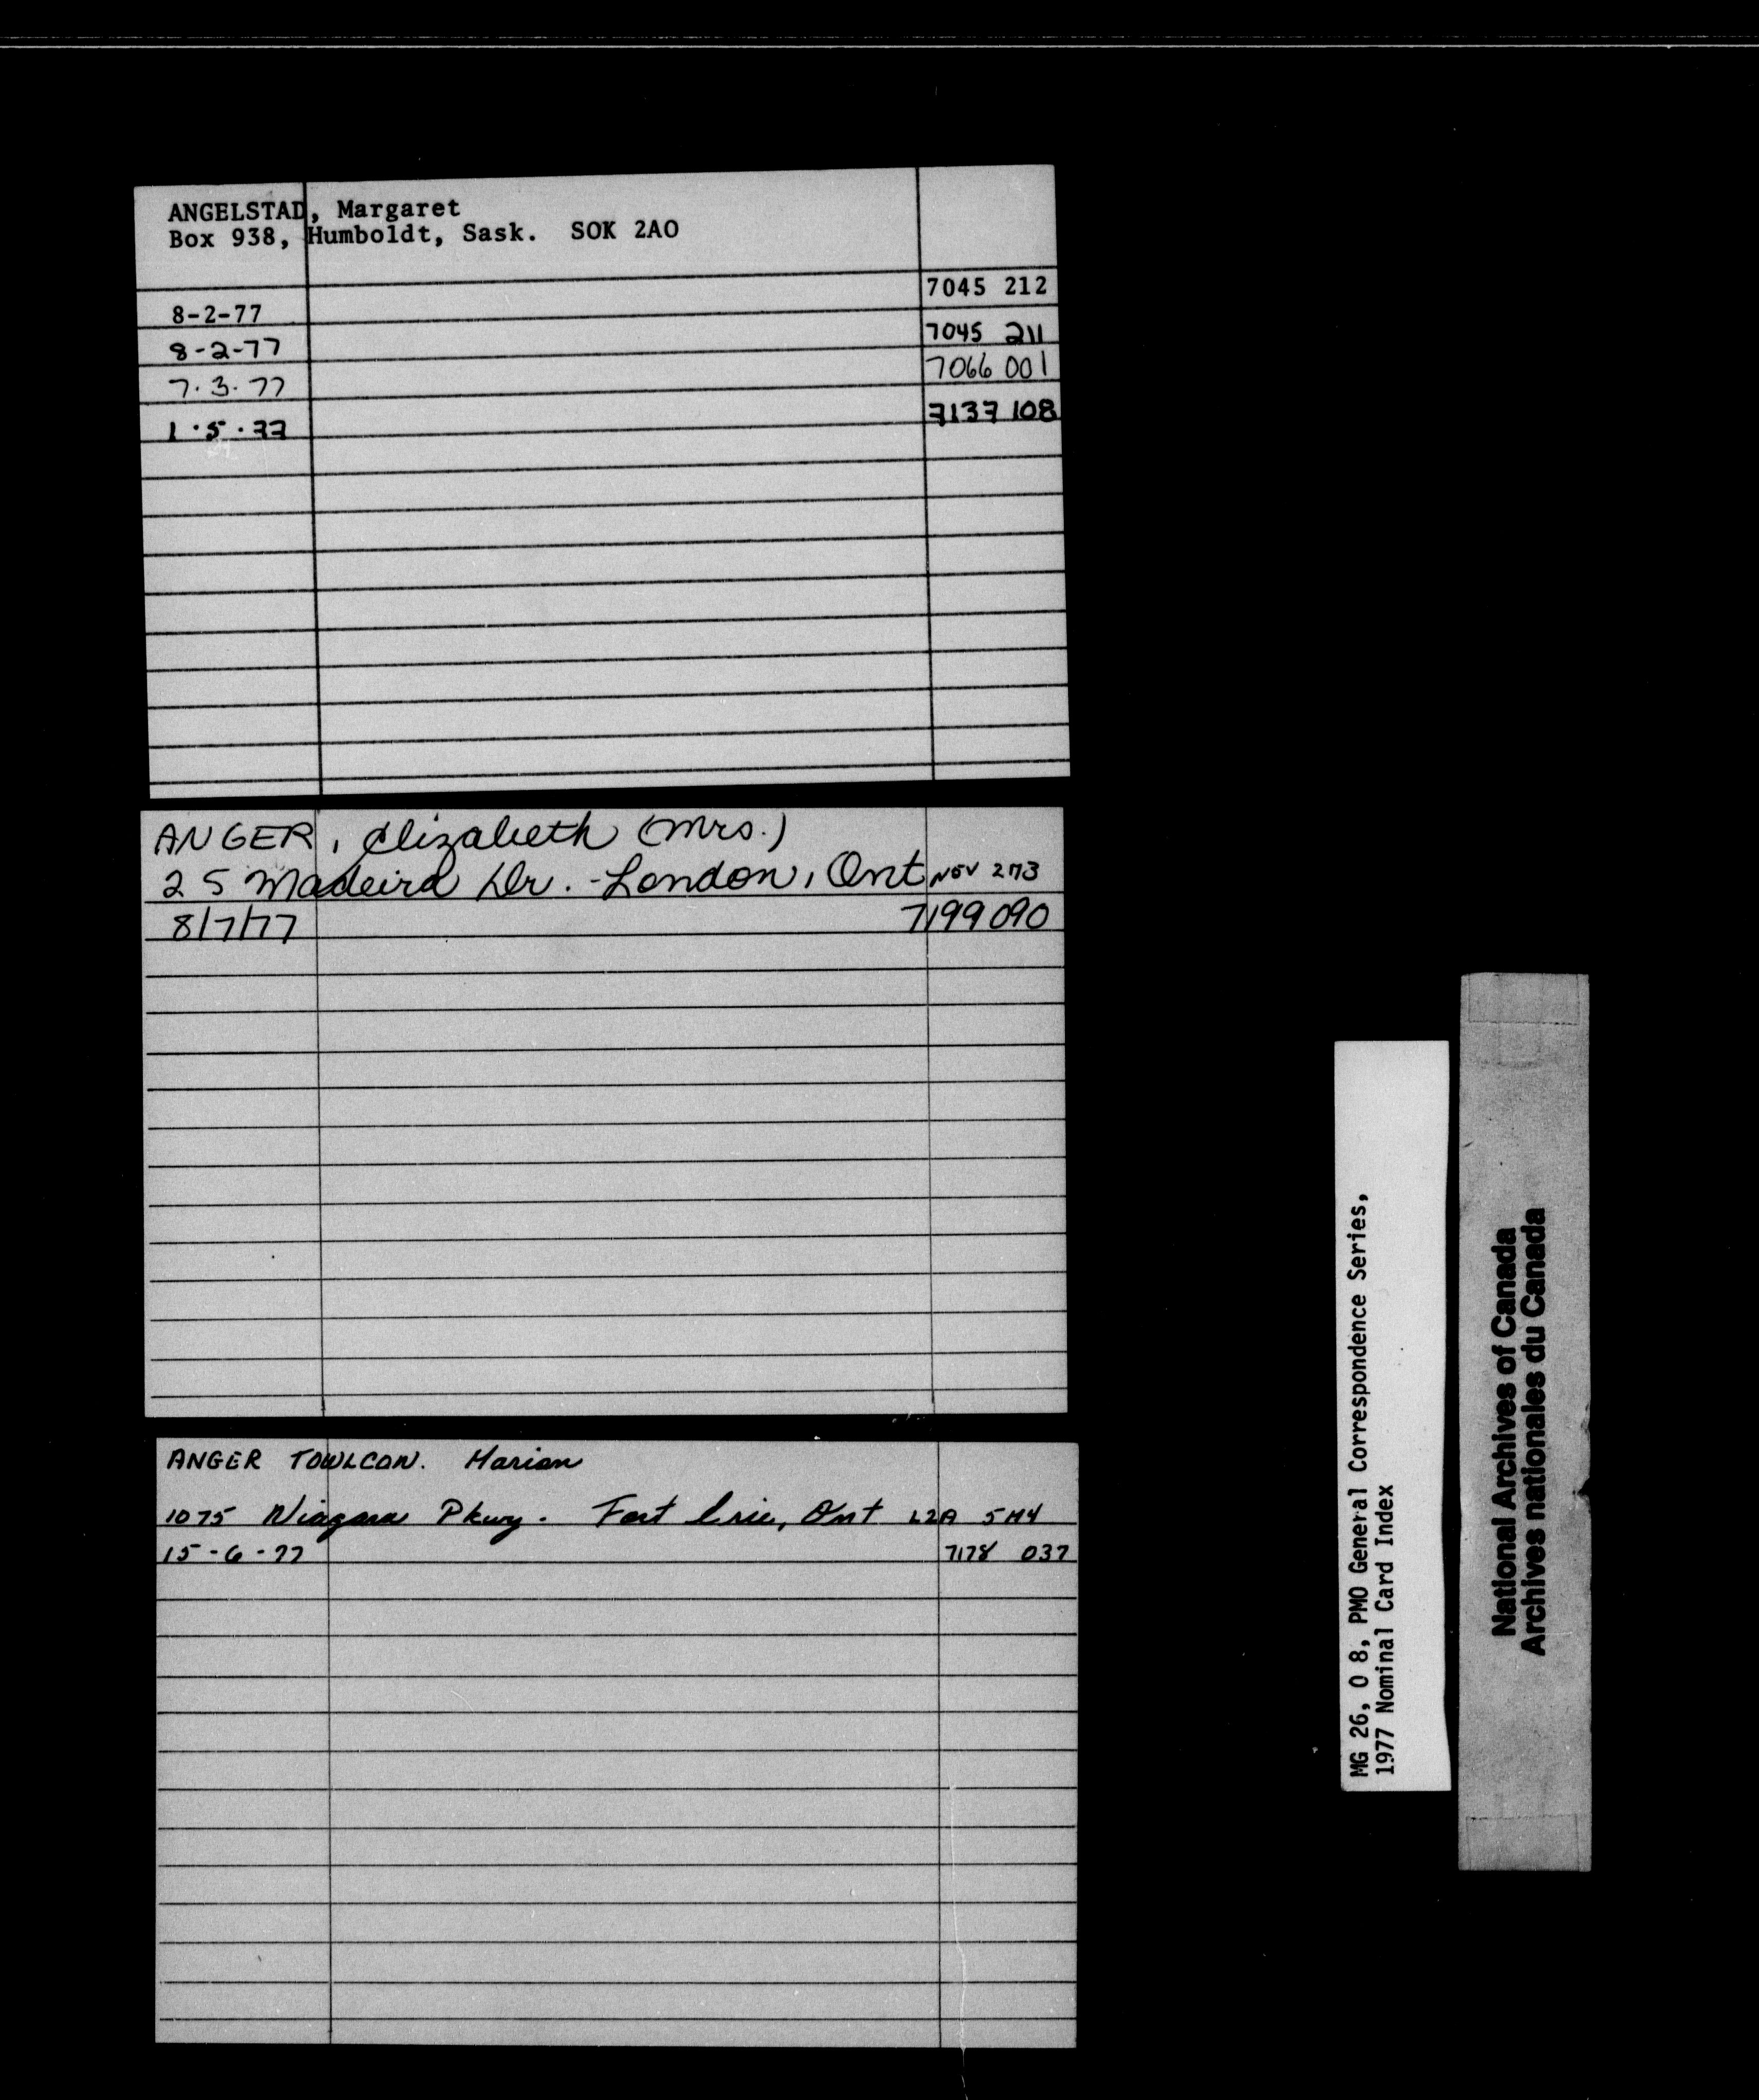 ANGELSTAD, Margaret
Box 938, Humboldt, Sask. SOK 2AO
7045 212
8-2-77
7045 211
8-2-77
7066 001
7.3.77
7137 108
1.5.77
ANGER, Elizabeth (Mrs.)
25 Madeira Dr. - London, Ont N5V 2M3
8/7/77 7199 090
ANGER TOWLCON. Marion
1075 Niagara Pkwy. Fort Erie, Ont L2A 5M4
15-6-77 7178 037
MG 26, O 8, PMO General Correspondence Series,
1977 Nominal Card Index
National Archives of Canada
Archives nationales du Canada